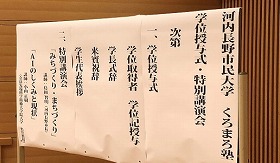 河内長野市民大学 くろまろ塾
学位授与式・特別講演会
次第
一、学位授与式
学位取得者 学位記授与
学長式辞
来賓祝辞
学生代表挨拶
一、特別講演会
「みちづくり・まちづくり」
「AIのしくみと現状」